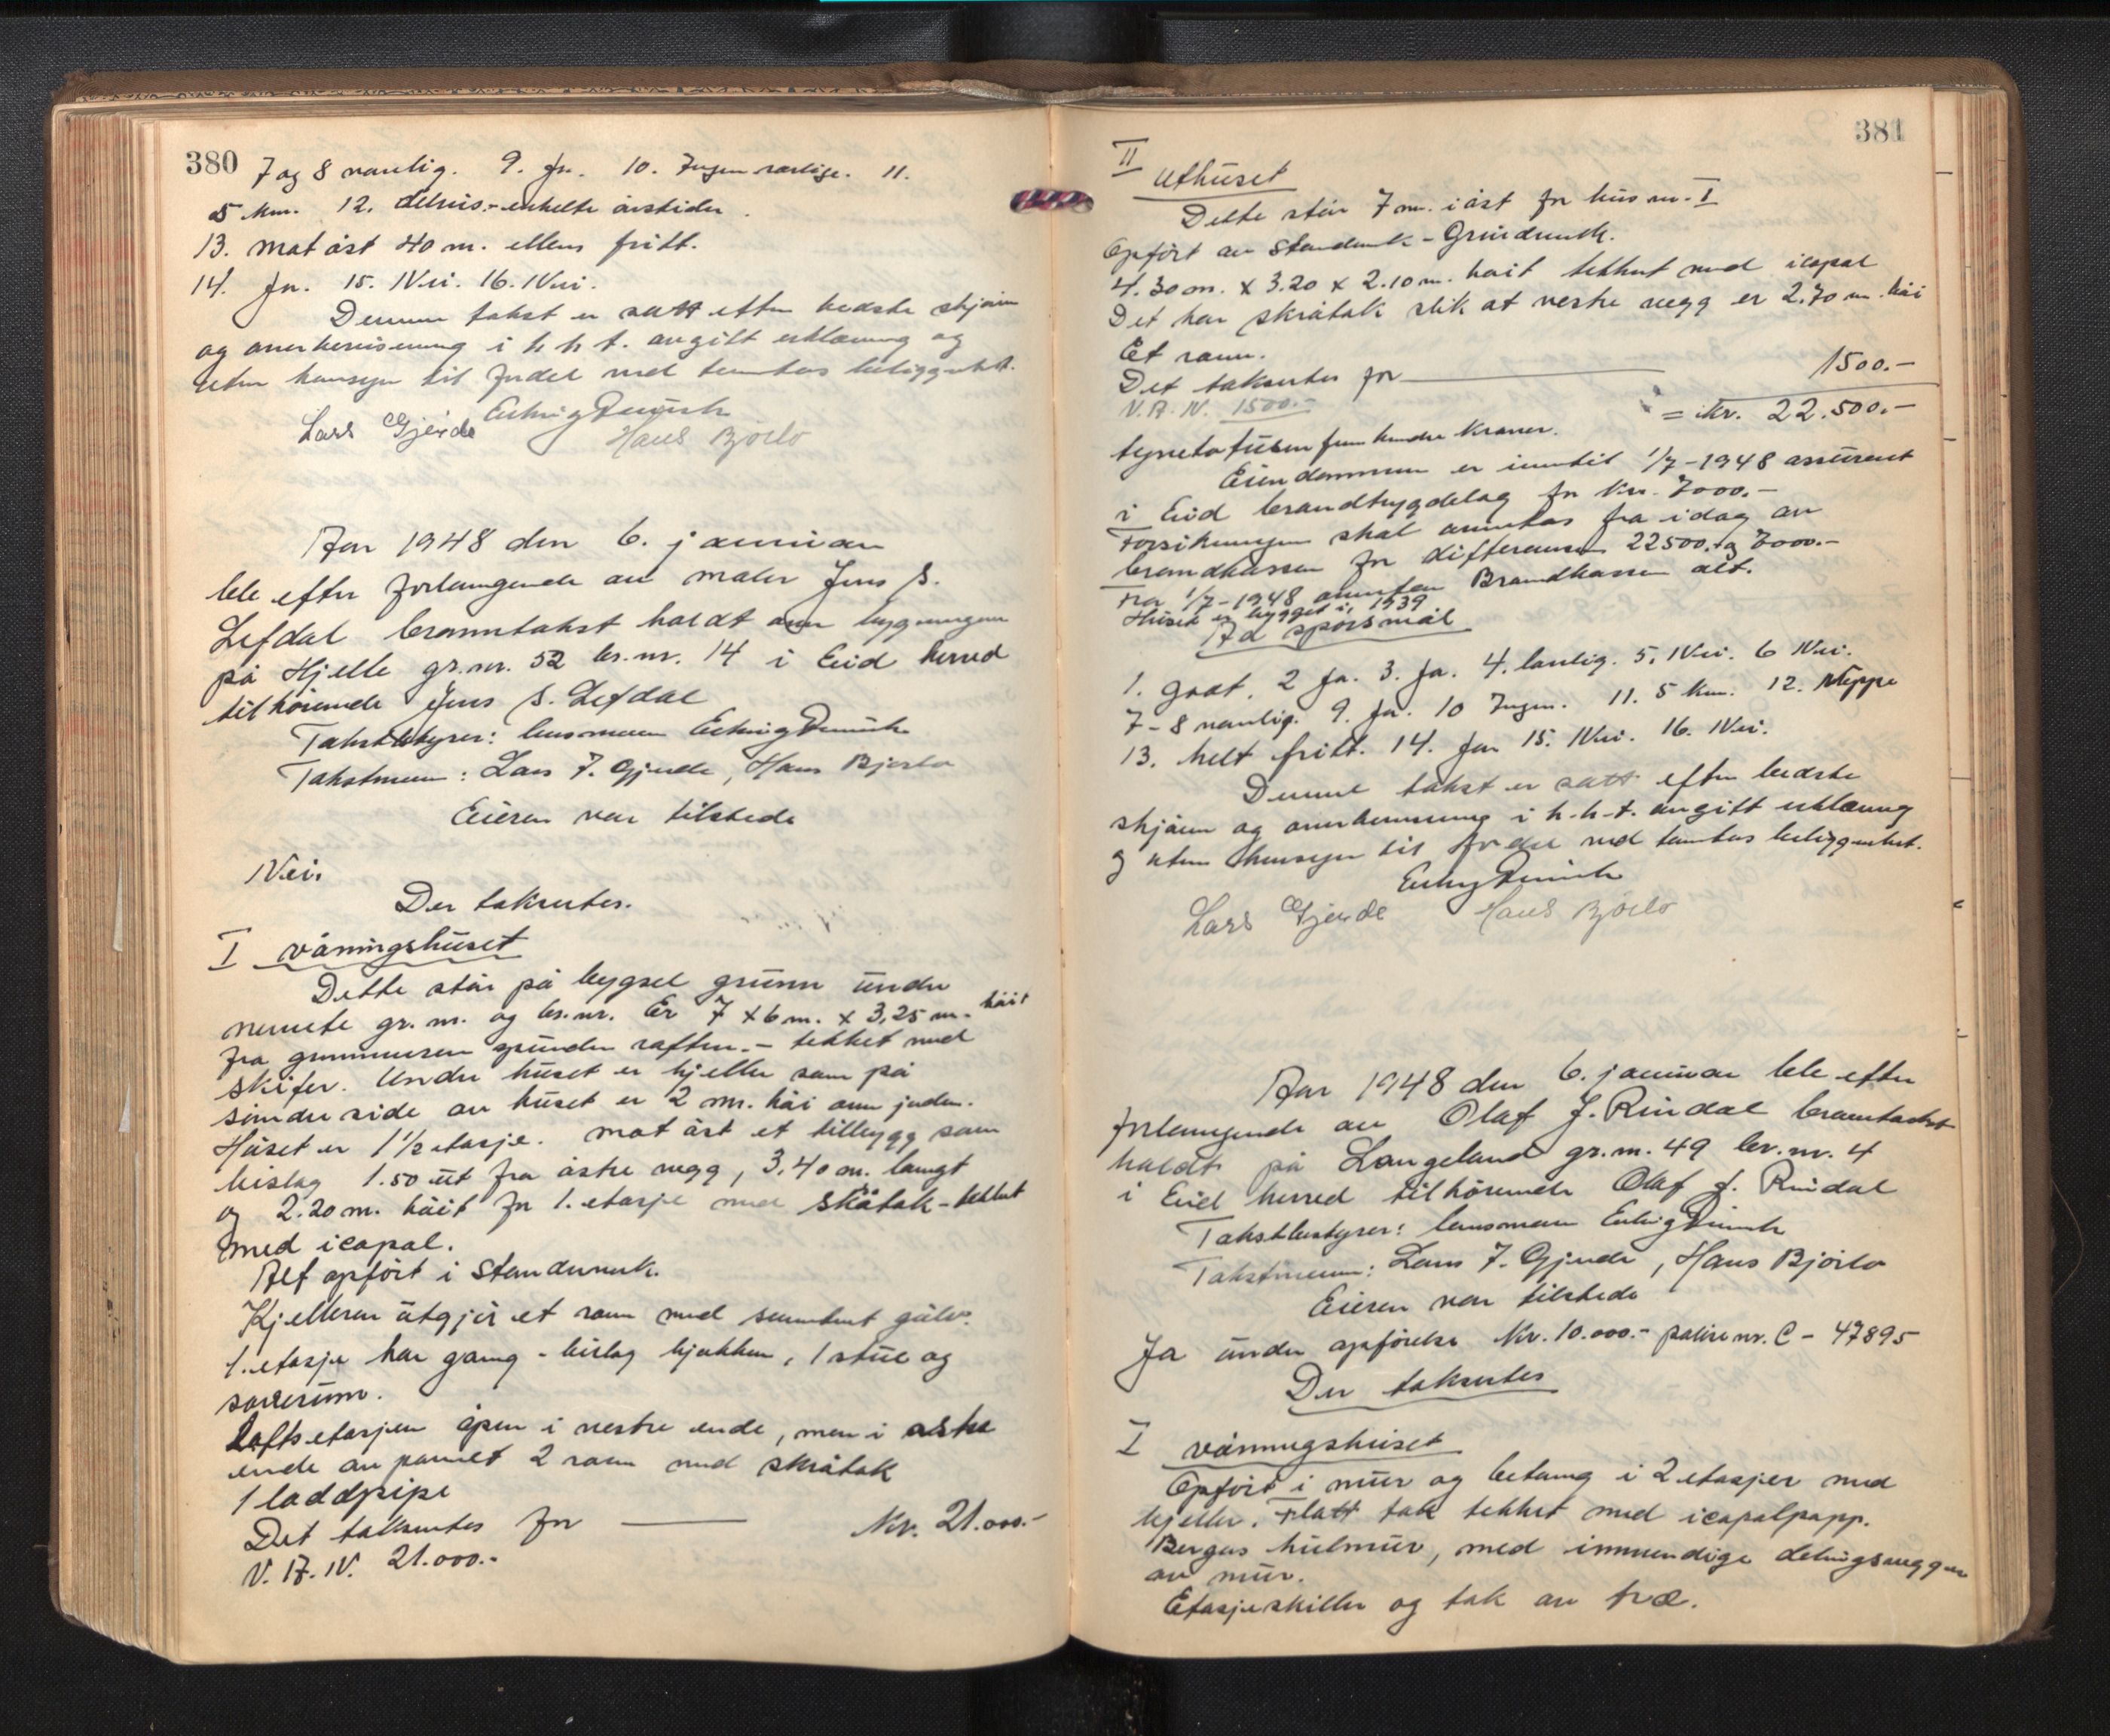 380
7 og 8 vanlig. 9. Ja. 10. Ingen særlige. 11.
5 km. 12. delvis - enkelte årstider.
13. mot øst 40 m. ellers fritt.
14. Ja. 15. Nei. 16. Nei.
Denne takst er satt efter bedste skjønn
og overbevisning i h h t. avgitt erklæring og
uten hensyn til fordel ved tomtens beliggenhet.
Lars Gjerde Hans Bjørlo
Aar 1948 den 6. januar
ble efter forlangende av maler Jens S.
Lefdal branntakst holdt over bygningen
på Hjelle gr.nr. 52 br.nr. 14 i Eid herred
tilhörende Jens S. Lefdal
Takstbestyrer: lensmann
Takstmenn: Lars J. Gjerde, Hans Bjørlo
Eieren var tilstede
Nei.
Der takseretes.
I våningshuset
Dette står på bygsel grunn under
nevnte gr. nr. og br.nr. Er 7 x 6 m. x 3,25 m. høit
fra grunnmuren under raften. - tekket med
skifer. Under huset er kjeller som på
söndre side av huset er 2 m. høi over jorden.
Huset er 1 1/2 etasje. mot øst et tilbygg som
bislag 1.50 ut fra østre vegg, 3.40 m. langt
og 2.20 m. høit for 1. etasje med skåtak - tekket
med icopal.
Alt opfört i Standverk.
Kjelleren utgjør et rom med sementert gulv.
1. etasje har gang - bislag kjøkken, 1 stue og
soverum.
Loftsetasjen åpen i vestre ende, men i østre
ende av panelt 2 rom med skråtak
1 laddpipe
Det takseretes for Kr. 21.000.-
V.B.N. 21.000.-
381
II Uthuset
Dette står 7 m. i øst for hus nr. I
Opfört av Standverk - Grindverk.
4.30 m. x 3.20 x 2.10 m. høit tekket med icopal
Det har skråtak slik at vestre vegg er 2.70 m. høi
Et rom.
Det takseretes for 1500.-
V.B.N. 1500.-
= Kr. 22.500.-
tjueto tusen fem hundre kroner.
Eiendommen er inntil 1/7 - 1948 assurert
i Eid brandbygdelag for Kr. 7000.-
Forsikringen skal overtas fra idag av
brandkassen for differansen 22500.- og 7000.-
Fra 1/7 - 1948 overtar Brandkassen alt.
Huset er bygget i 1939
Ad spørsmål
1. godt. 2 Ja. 3. Ja. 4. lanlig. 5. Nei. 6 Nei.
7 - 8 vanlig. 9. Ja. 10 Ingen. 11. 5 km. 12. Neppe
13. helt fritt. 14. Ja 15. Nei. 16. Nei.
Denne takst er satt efter bedste
skjønn og overbevisning i h-h-t. avgitt erklæring
og uten hensyn til fordel ved tomtens beliggenhet.
Lars Gjerde Hans Bjørlo
Aar 1948 den 6. januar ble efter
forlangende av Olaf J. Rindal branntakst
holdt på Langeland gr.nr. 49 br.nr. 4
i Eid herred tilhörende Olaf J. Rindal
Takstbestyrer: lensmann
Takstmenn: Lars J. Gjerde, Hans Bjørlo
Eieren var tilstede
Ja under opförelse Kr. 10.000.- polise nr. C - 47895
Der takseretes
I våningshuset
Opfört i mur og betong i 2 etasjer med
kjeller. Flatt tak tekket med icopalpapp.
Bergens hulmur, med innvendige delingsvegger
av mur.
Etasjeskiller og tak av træ.